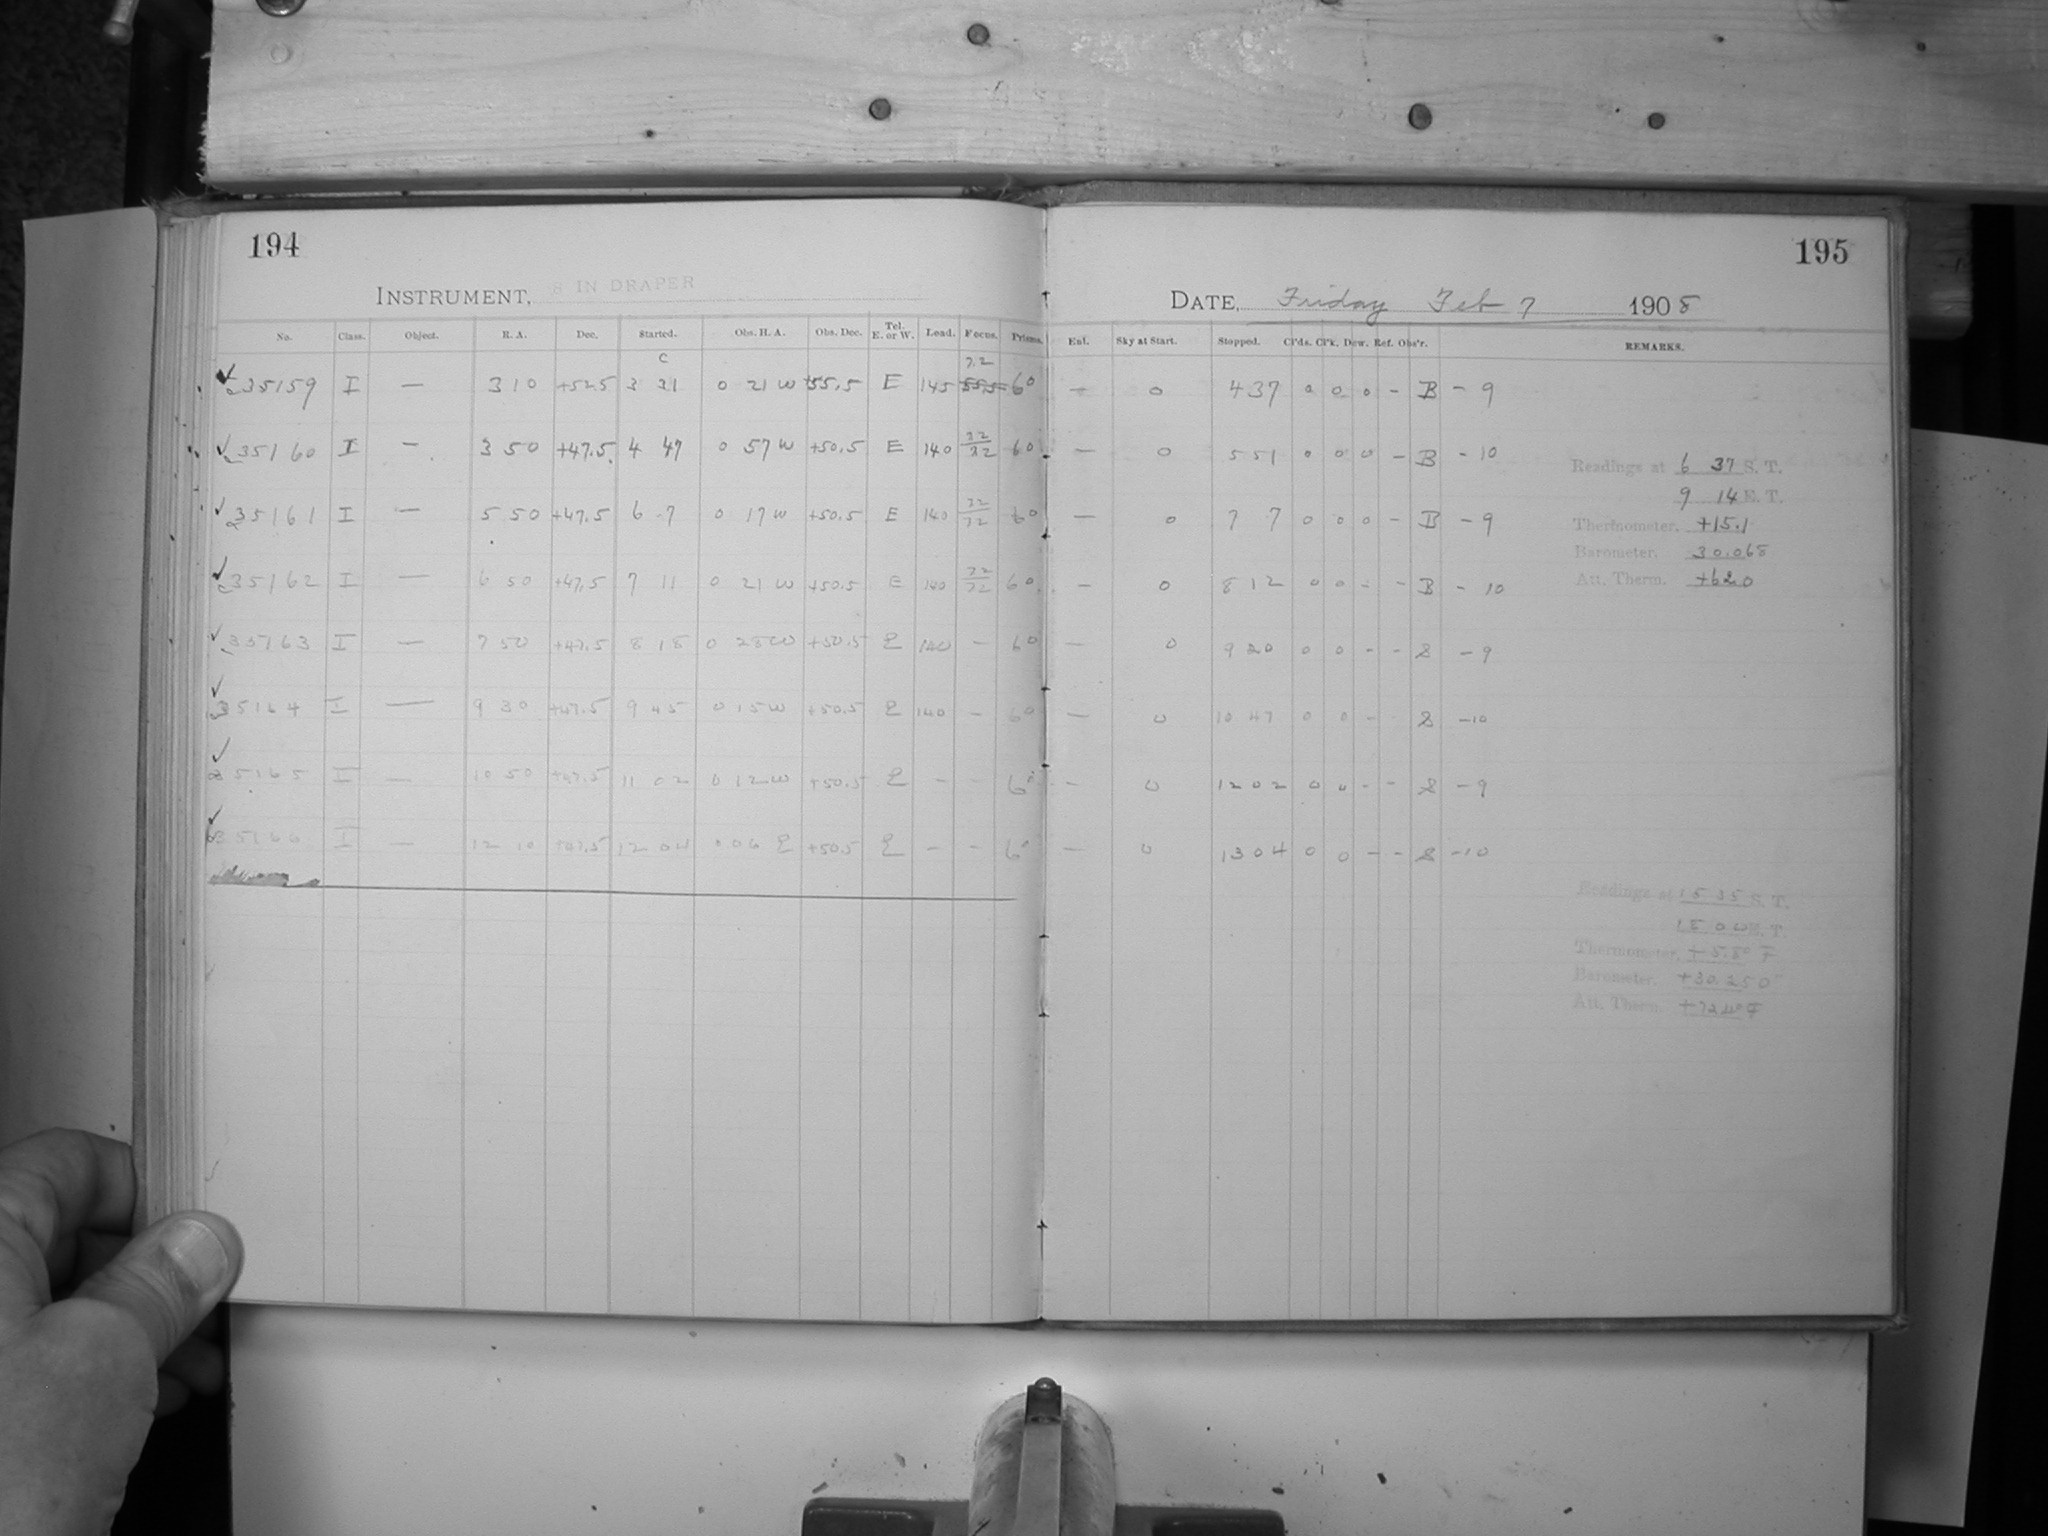 194
INSTRUMENT, 8 IN DRAPER
No. Class. Object. R. A. Dec. Started. Obs. H. A. Obs. Dec. Tel. E. or W. Lead. Focus. Prisms.
C 7.2
35159 I — 3 10 +52.5 3 31 0 21 W +55.5 E 145 60
35160 I — 3 50 +47.5 4 47 0 57 W +50.5 E 140 32/32 60
35161 I — 5 50 +47.5 6 7 0 17 W +50.5 E 140 32/32 60
35162 I — 6 50 +47.5 7 11 0 21 W +50.5 E 140 32/32 60
35163 I — 7 50 +47.5 8 18 0 28 W +50.5 E 140 — 60
35164 I — 9 30 +47.5 9 45 0 15 W +50.5 E 140 — 60
35165 I — 10 50 +47.5 11 02 0 12 W +50.5 E — — 6
35166 I — 12 10 +47.5 12 04 0 06 E +50.5 E — — 6
195
DATE, Friday Feb 7 1908
Enl. Sky at Start. Stopped. Cl'ds. Cl'k. Dew. Ref. Obs'r. REMARKS.
— 0 4 37 0 0 0 — B — 9
— 0 5 51 0 0 0 — B — 10
— 0 7 7 0 0 0 — B — 9
— 0 8 12 0 0 — — B — 10
— 0 9 20 0 0 — — S — 9
— 0 10 47 0 0 — S — 10
— 0 12 02 0 0 — — S — 9
— 0 13 04 0 0 — — S — 10
Readings at 6 37 S. T.
9 14 E. T.
Thermometer. +15.1
Barometer. 30.068
Att. Therm. +62.0
Readings at 15 35 S. T.
E. T.
Thermometer. +5.8° F
Barometer. +30.250
Att. Therm.